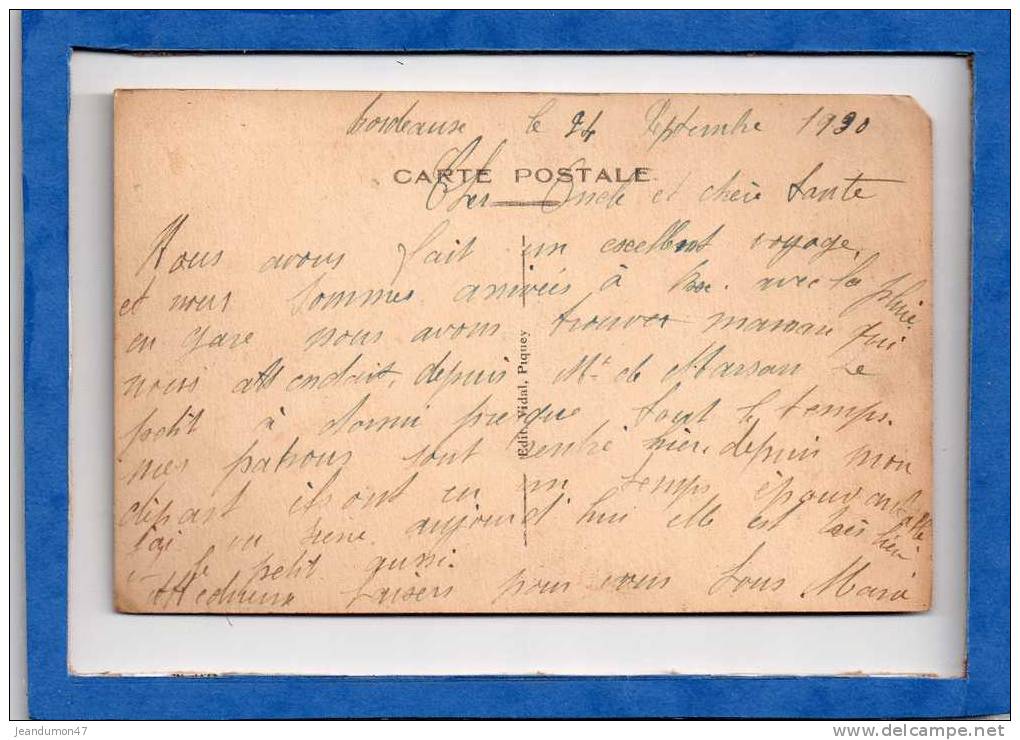 Bordeaux le 24 Septembre 1930
CARTE POSTALE
Cher Oncle et chère tante
Nous avons fait un excellent voyage,
et nous sommes arrivées à Bx. avec la pluie.
en gare nous avons trouver maman qui
nous attendait, depuis Mt de Marsan le
petit à dormi presque tout le temps.
mes patrons sont rentré hier, depuis mon
départ ils ont eu un temps épouvantable
j'ai vu Irène aujourd'hui elle est très bien
le petit aussi.
Affectueux baisers pour vous tous Maria
Edit. Vidal, Piquey
jeandumon47
http://www.delcampe.net